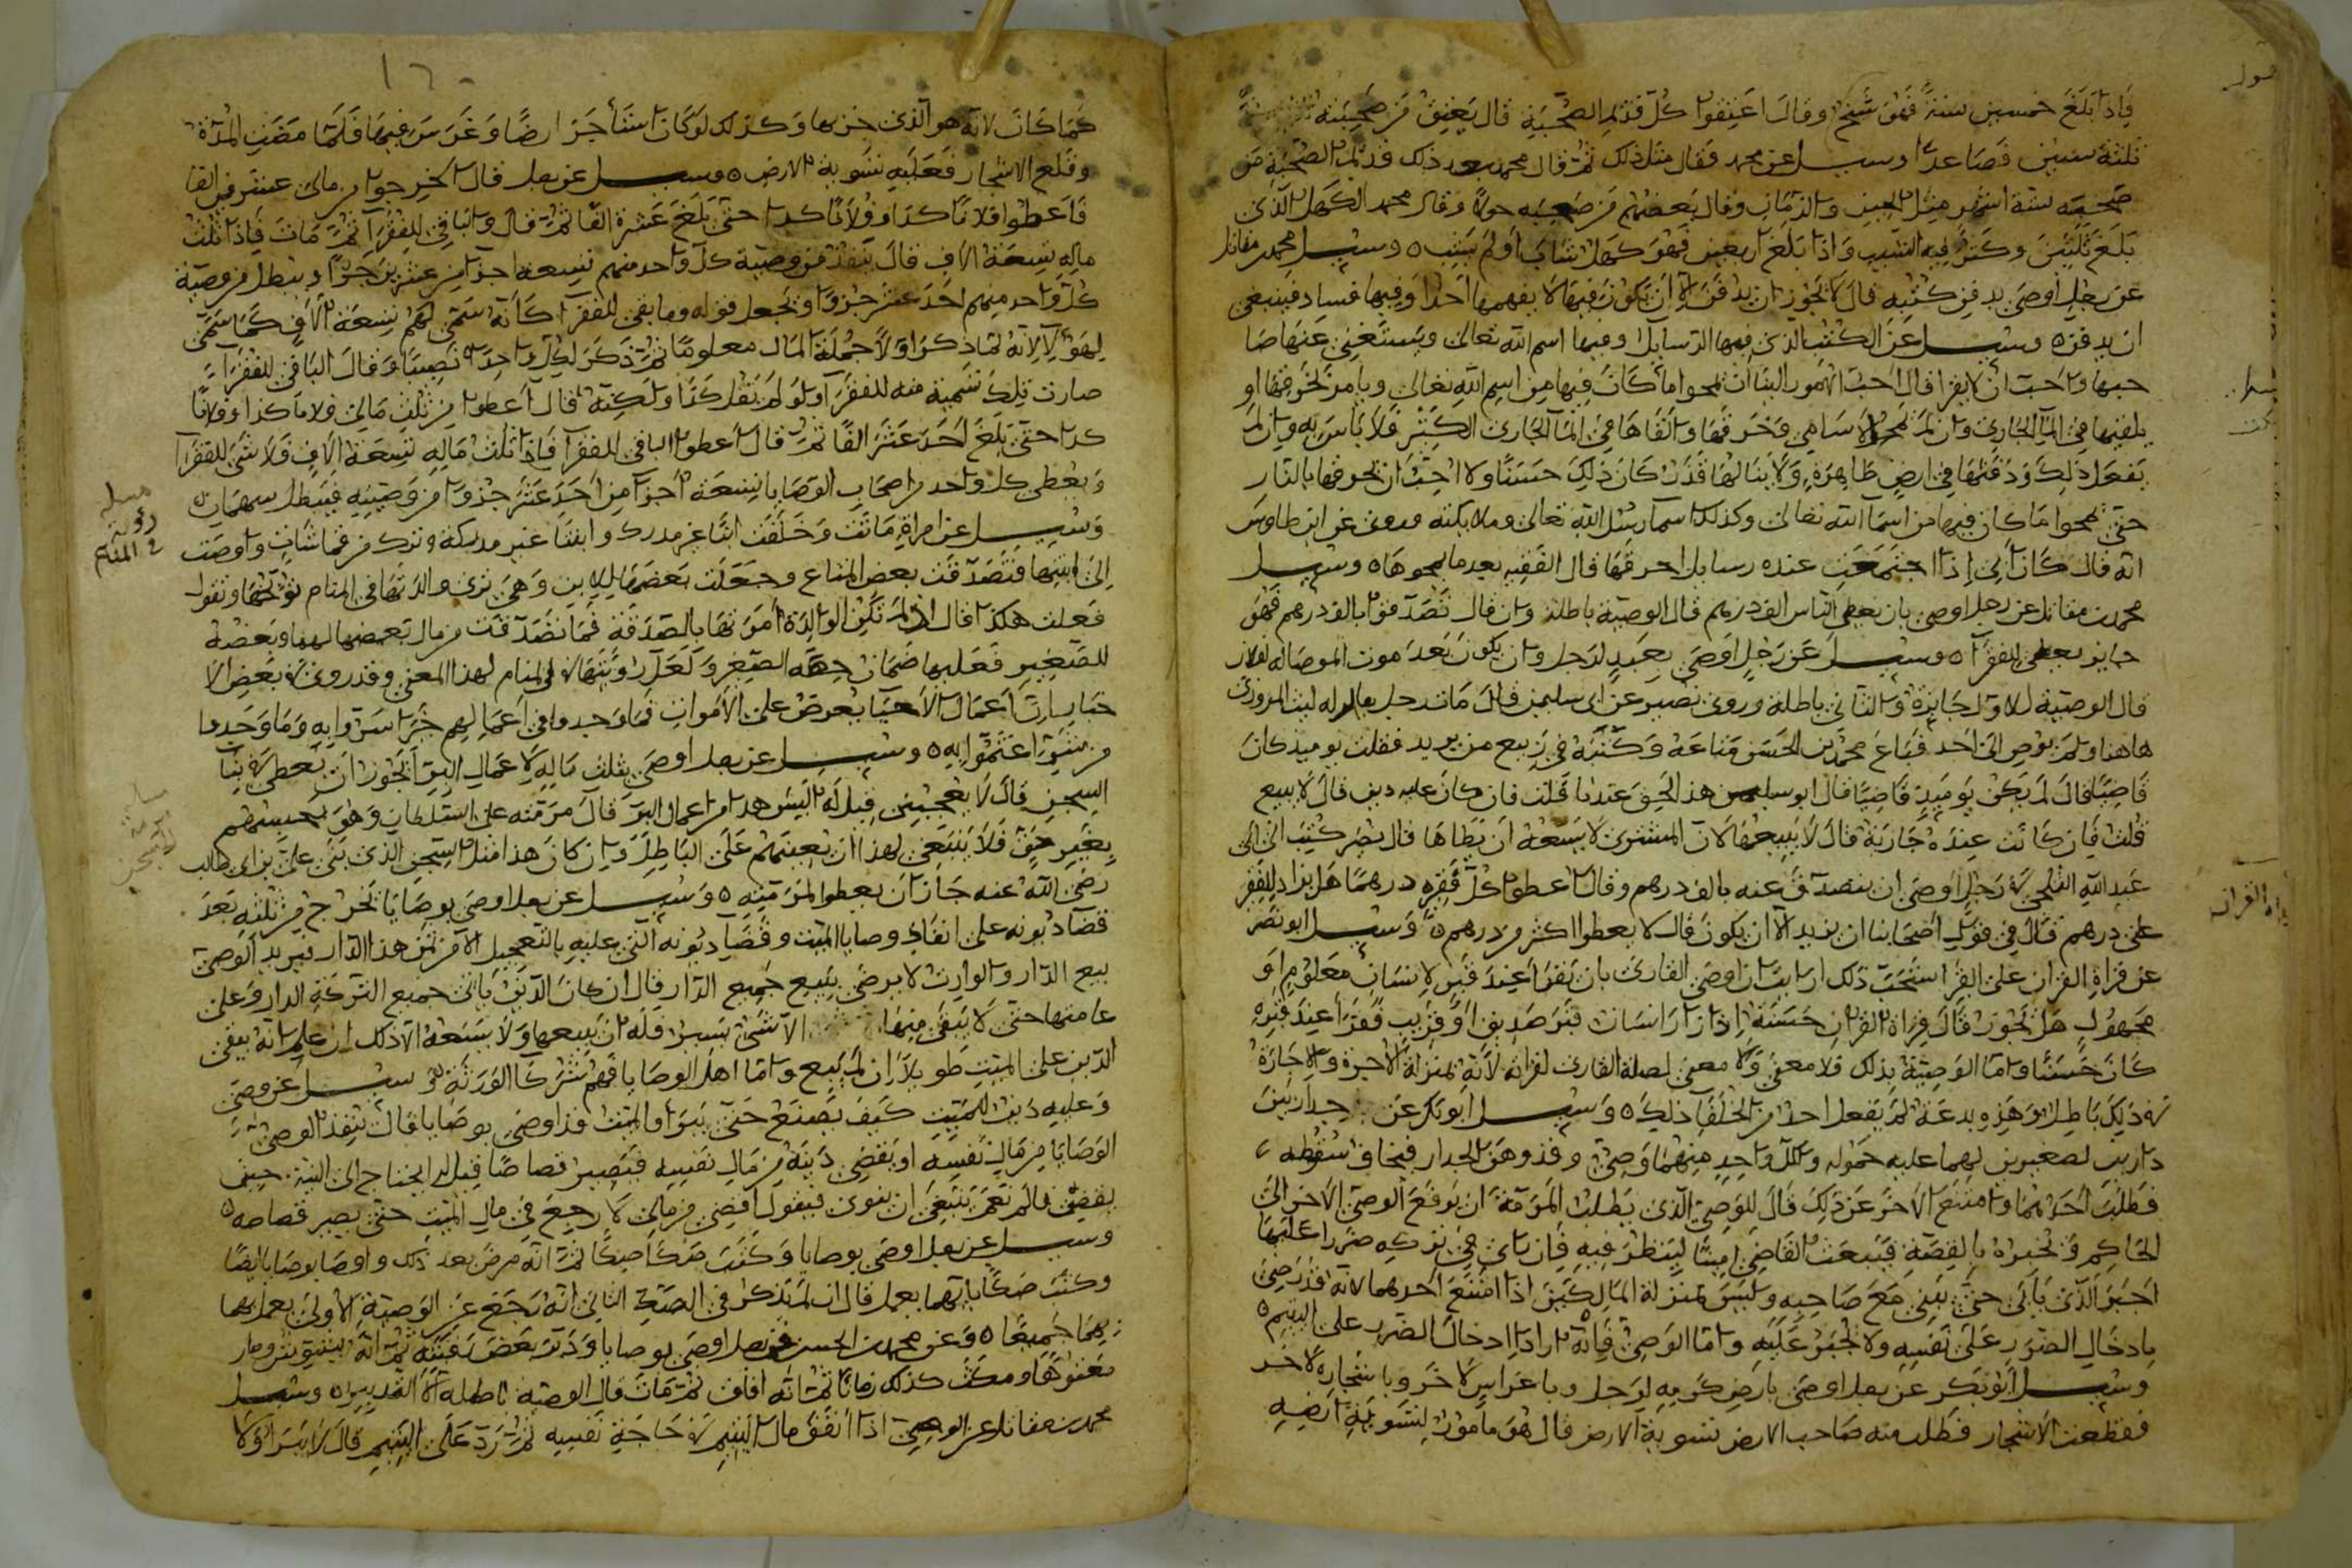 فإذا بلغ خمسين سنة فهو شيخ وقال اعتقوا كل قديم الصحبة قال يعتق من صحبته
ثلثة سنين فصاعدا وسئل عن محمد فقال مثل ذلك ثم قال محمد بعد ذلك قديم الصحبة من
صحبه ستة اشهر مثل الحين والزمان وقال بعضهم من صحبه حولا وقال محمد الكهل الذي
بلغ ثلثين وكثر فيه الشيب واذا بلغ اربعين فهو كهل شاب او لم يشب وسئل محمد بن مقاتل
عن رجل اوصى بدفن كتبه قال لا يجوز ان يدفن الا ان يكون فيها لا يفهمها احدا وفيها فساد فينبغي
ان يدفن وسئل عن الكتب الذي فيها الرسايل وفيها اسم الله تعالى ويستغني عنها صا
حبها واحب ان لا يقرا قال احب الامور الينا ان يمحوا ما كان فيها من اسم الله تعالى ويامر لحرقها او
يلقيها في الماء الجاري وان لم يمحوا الاسامي وحرقها والقاها في الماء الجاري الكثير فلا باس به وان لم
يفعل ذلك ودفنها في ارض طاهرة ولا ينالها قذر كان ذلك حسنا ولا احب ان يحرقها بالنار
حتى يمحوا ما كان فيها من اسما الله تعالى وكذلك اسما رسل الله تعالى وملايكته وروى عن ابن طاوس
انه قال كان ابي اذا اجتمعت عنده رسايل احرقها قال الفقيه بعد ما يمحوها وسئل
محمد بن مقاتل عن رجل اوصى بان يعطى الناس الف درهم قال الوصية باطلة وان قال تصدقوا بالف درهم فهو
جايز يعطى للفقرا وسئل عن رجل اوصى بعبد لرجل وان يكون بعد موت الموصا له لفلان
قال الوصية للاول جايزة والثاني باطلة وروى نصير عن ابي سليمن قال مات رجل يقال له ليث المروزي
هاهنا ولم يوص الى احد فباع محمد بن الحسن متاعه وكتبه في زبيع من يريد فقلت يوميذ كان
قاضيا قال لم يكن يوميذ قاضيا قال ابو سليمن هذا الحق عندنا قلت فان كان عليه دين قال لا يبيع
قلت فان كانت عنده جارية قال لا يبيعها لان المشترى لا يسعه ان يطاها قال نصير كتب الى ابي
عبد الله البلخي في رجل اوصى ان يتصدق عنه بالف درهم وقال اعطوا كل فقير درهما هل يزاد للفقير
على درهم قال في قول اصحابنا ان نزيد الا ان يكون قال لا يعطوا اكثر من درهم وسئل ابو نصر
عن قراة القران على القبر استحب ذلك ارايت ان اوصى القارئ بان يقرا عند قبر لانسان معلوم او
مجهول هل يجوز قال قراة القران حسنة اذا زار انسان قبر صديق او قريب فقرا عند قبره
كان حسنا واما الوصية بذلك فلا معنى ولا معنى لصلة القارئ لقرانه لانه بمنزلة الاجرة والاجارة
في ذلك باطل وهذه بدعة لم يفعل احد من الخلفا ذلك وسئل ابو بكر عن جدار بين
دارين لصغيرين لهما عليه حموله ولكل واحد منهما وصي وقد وهن الجدار فيخاف سقوطه
فطلب احدهما وامتنع الاخر عن ذلك قال للوصي الذي يطلب المرمة ان يرفع الوصي الاخر الى
الحاكم ويخبره بالقصة فيبعث القاضي امينا لينظر فيه فان راى في تركه ضررا عليها
اجبر الذي يابى حتى يبني مع صاحبه وليس بمنزلة المالكين اذا امتنع احدهما لانه قد رضي
بادخال الضرر على نفسه ولا يجبر عليه واما الوصي فانه اراد ادخال الضرر على اليتيم
وسئل ابو بكر عن رجل اوصى بارض كرمه لرجل وباغراس لاخر وباشجاره لاخر
فقطعت الاشجار فطلب منه صاحب الارض تسوية الارض قال هو مامور لتسوية ارضه
كما كان لانه هو الذي خربها وكذلك لو كان استاجر ارضا وغرس فيها فلما مضت المدة
وقلع الاشجار فعليه تسوية الارض وسئل عن رجل قال اخرجوا من مالى عشرين الفا
فاعطوا فلانا كدا وفلانا كدا حتى بلغ عشرة الفا ثم قال والباقي للفقرا ثم مات فاذا ثلث
ماله تسعة الاف قال ينفذ من وصية كل واحد منهم تسعة اجزا من عشرين جزا ويبطل من وصية
كل واحد منهم احد عشر جزوا ويجعل قوله وما بقى للفقرا كانه سمى لهم تسعة الاف كما سمى
لهولا لانه لما ذكر اولا جملة المال معلوما ثم ذكر لكل واحد نصيبا وقال الباقي للفقراء
صارت تلك تسمية منه للفقرا ولو لم يقل كذا ولكنه قال اعطوا من ثلث مالي فلانا كذا وفلانا
كدا حتى بلغ احد عشر الفا ثم قال اعطوا الباقي للفقرا فاذا ثلث ماله تسعة الاف فلا شي للفقرا
ويعطى كل واحد من اصحاب الوصايا تسعة اجزا من احد عشر جزوا من وصيته فيبطل سهمان
وسئل عن امراة ماتت وخلفت ابنا غير مدرك وابنتا غير مدركة وتركت قماشات واوصت
الى ابنتها فتصدقت بعض المتاع وجعلت بعضها للابن وهي ترى والدتها في المنام توبخها وتقول
فعلت هكذا قال اذا لم تكن الوالدة امرتها بالصدقة فما تصدقت من مال بعضها لها وبعضه
للصغير فعليها ضمان حصة الصغير ولعل رويتها في المنام لهذا المعنى وقد روى في بعض الا
خبار ان اعمال الاحيا يعرض على الاموات فما وجدوا في اعمالهم خيرا سروا به وما وجدوا
من شر اغتموا به وسئل عن رجل اوصى بثلث ماله لاعمال البر ايجوز ان يعطى في بنا
السجن قال لا يعجبني قيل له اليس هدا من اعمال البر قال مرمته على السلطان وهو يحبسهم
بغير حق فلا ينبغي لهذا ان يعينهم على الباطل وان كان هذا مثل السجن الذي بنى علي بن ابي طالب
رضي الله عنه جاز ان يعطوا لمرمته وسئل عن رجل اوصى بوصايا تخرج من ثلثه بعد
قضا ديونه على انفاذ وصايا الميت وقضا ديونه التي عليه بالتعجيل الا من ثمن هذا الدار فيريد الوصي
بيع الدار والوارث لا يرضى ببيع جميع الدار قال ان كان الدين ياتى جميع التركة الدار وعلى
عامتها حتى لا يبقى منها الا شي يسير فله ان يبيعها ولا يسعه الا ذلك ان علم انه يبقى
الدين على الميت طويلا ان لم يبيع واما اهل الوصايا فهم شركا الورثة وسئل عن وصي
وعليه دين للميت كيف يصنع حتى يبرا والميت قد اوصى بوصايا قال ينفذ الوصي
الوصايا من مال نفسه او يقضي دينه من مال نفسه فيصير قصاصا قيل له ايحتاج الى النية حين
يقضى قال نعم ينبغي ان ينوى فيقول اقضي من مالى لارجع في مال الميت حتى يصير قصاصه
وسئل عن رجل اوصى بوصايا وكتب صكا صكا ثم انه مرض بعد ذلك واوصا بوصايا ايضا
وكتب صكا بايهما يعمل قال ان لم يذكر في الصك الثاني انه رجع عن الوصية الاولى يعمل بهما
جميعا وعن محمد بن الحسن في رجل اوصى بوصايا ودبر بعض رقيقه ثم انه وصار
معتوها ومكث كذلك زمانا ثم انه افاق ثم مات قال الوصية باطلة الا التدبير وسئل
محمد بن مقاتل عن الوصي اذا انفق مال اليتيم في حاجة نفسه ثم رد على اليتيم قال لا يبرا ولا
مسله
رؤية
في المنام